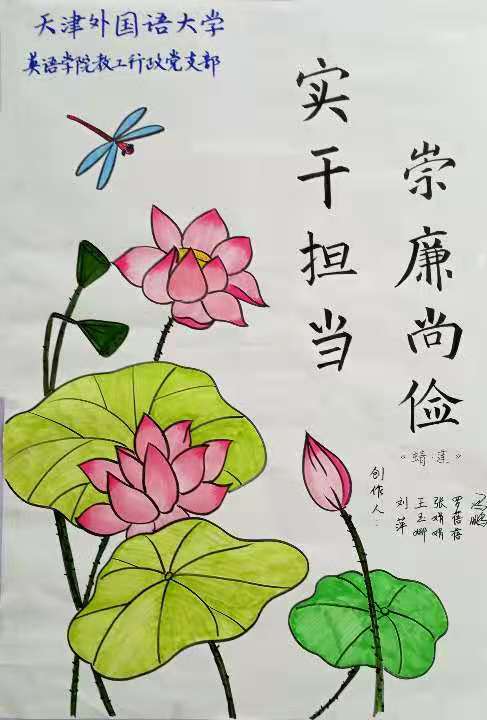 天津外国语大学
英语学院教工行政党支部
崇廉尚俭
实干担当
《蜻·莲》
创作人：
刘萍
王玉娜
罗蓓蓓